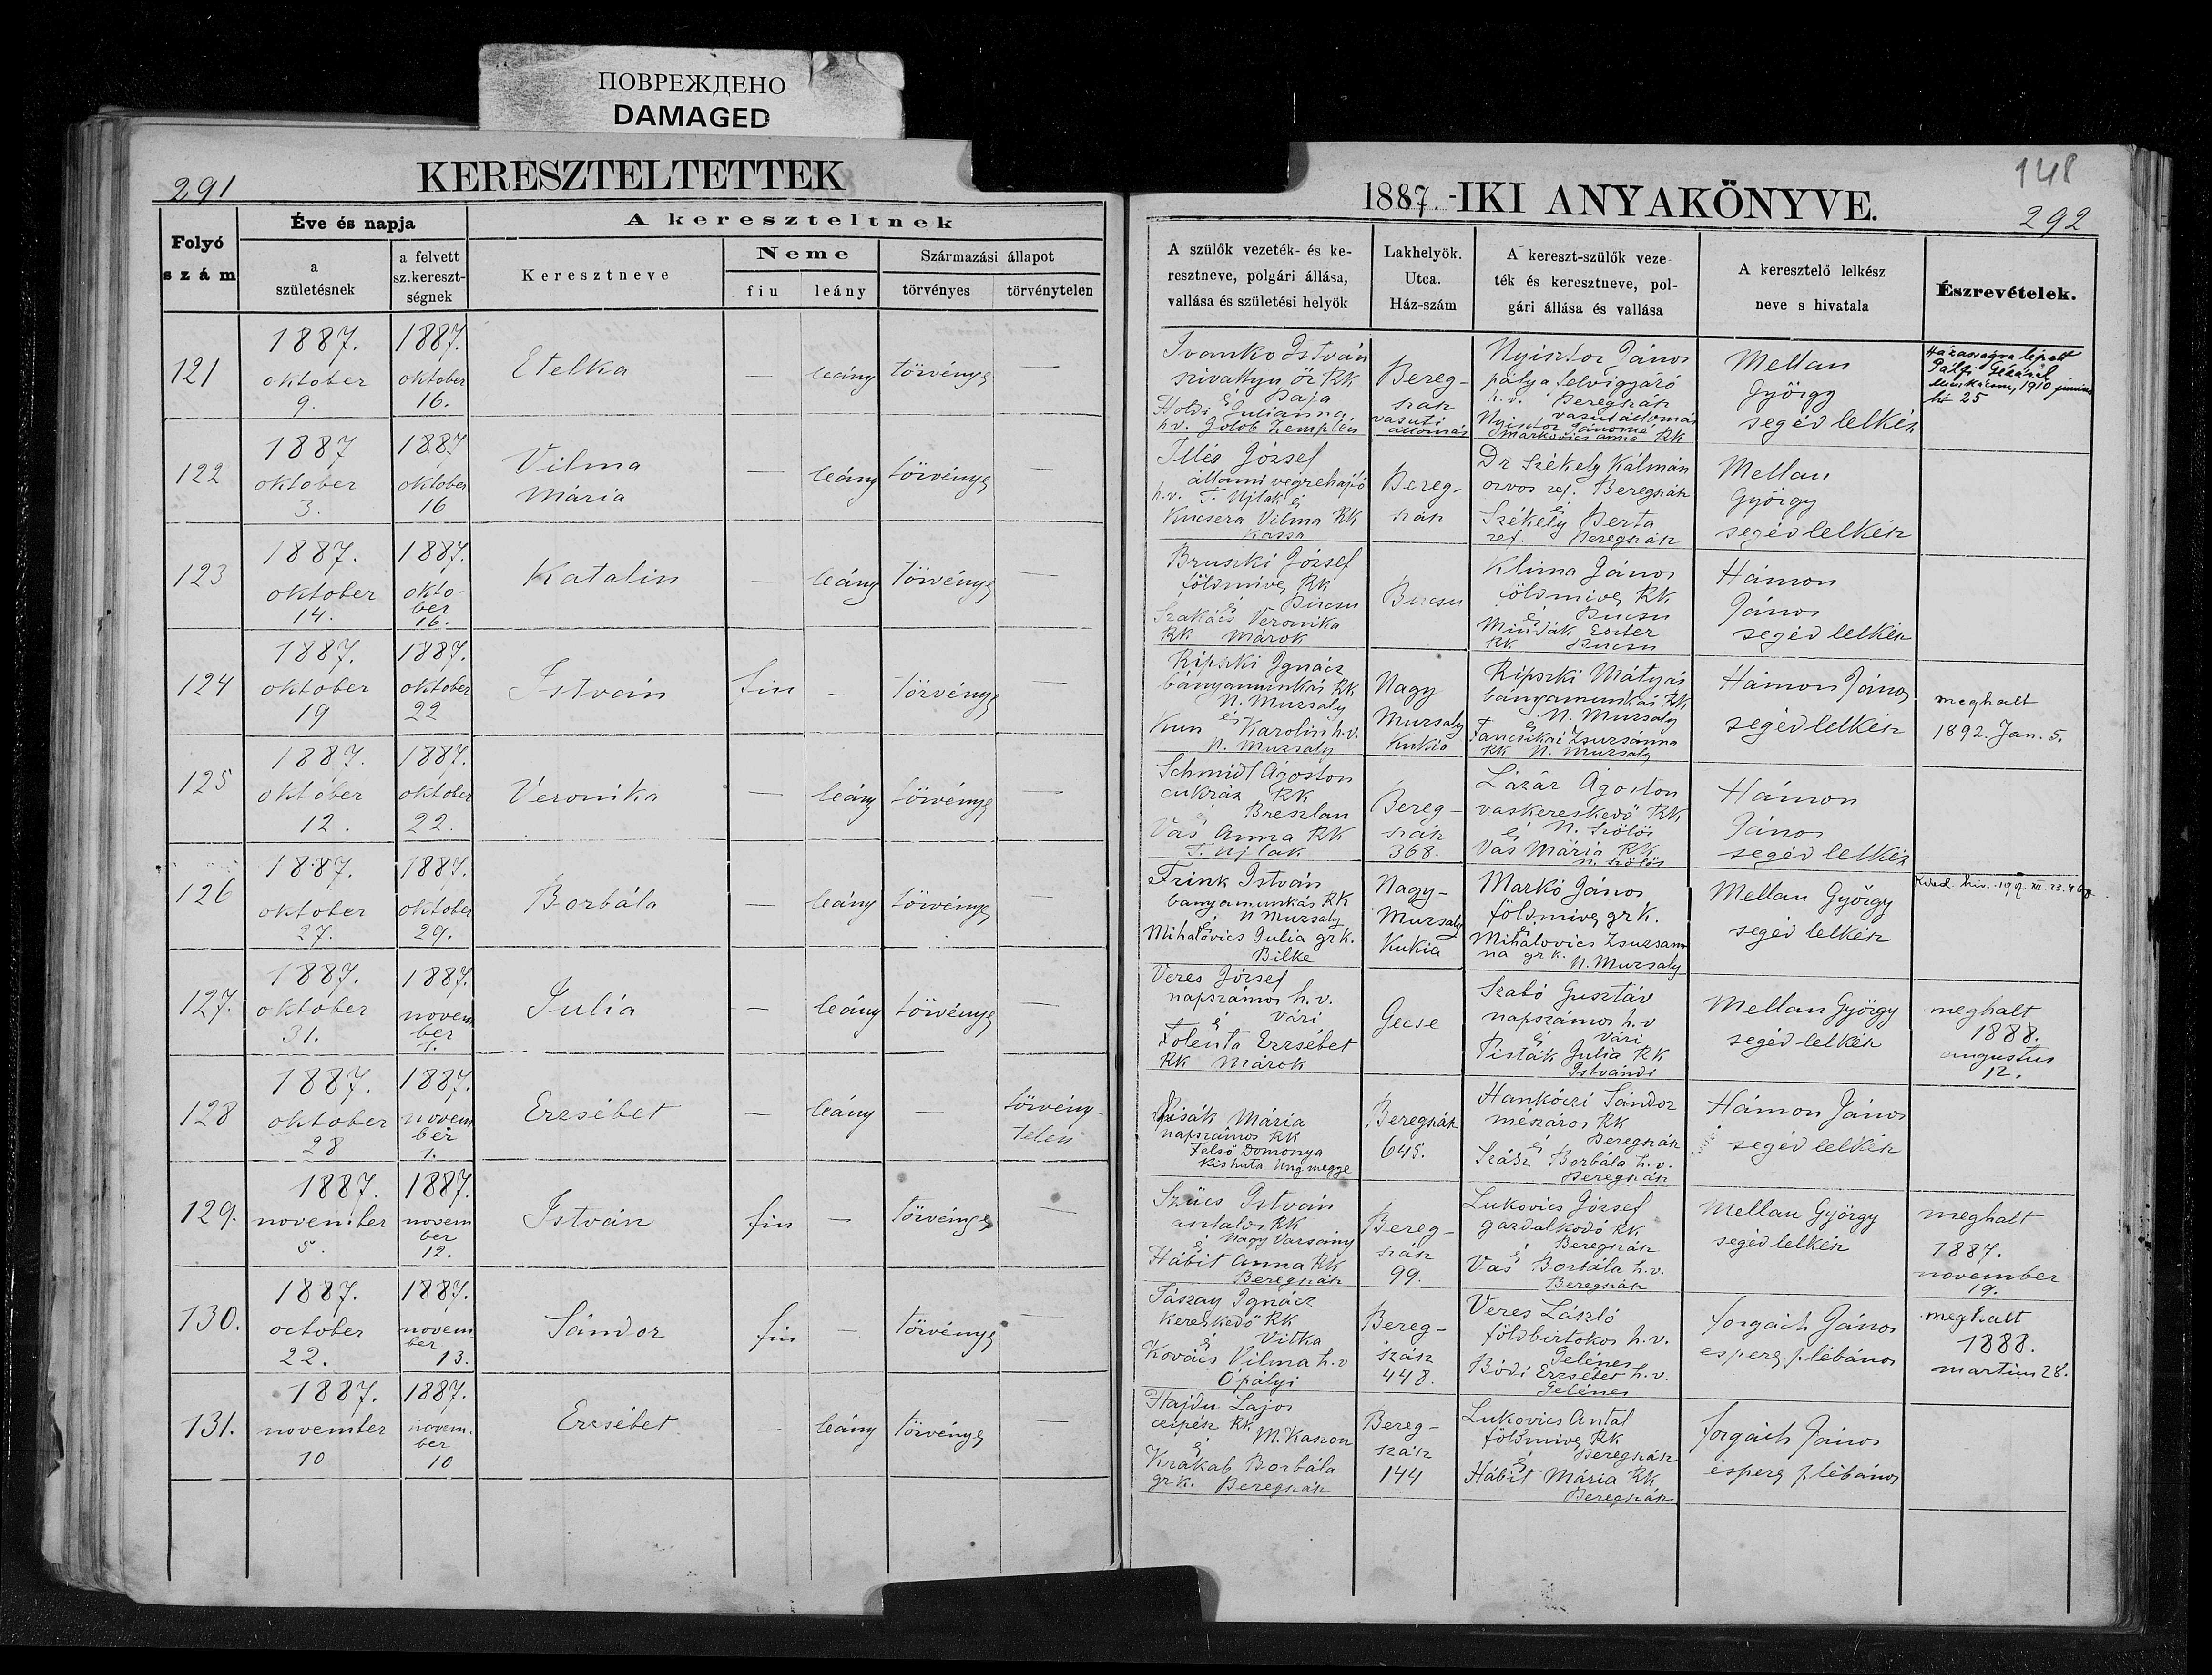 ПОВРЕЖДЕНО
DAMAGED
291
KERESZTELTETTEK
Folyó
szám
Éve és napja
a
születésnek
a felvett
sz.kereszt-
ségnek
A kereszteltnek
Keresztneve
Neme
fiu
leány
Származási állapot
törvényes
törvénytelen
148
1887.-IKI ANYAKÖNYVE.
292
A szülők vezeték- és ke-
resztneve, polgári állása,
vallása és születési helyök
Lakhelyök.
Utca.
Ház-szám
A kereszt-szülők veze-
ték és keresztneve, pol-
gári állása és vallása
A keresztelő lelkész
neve s hivatala
Észrevételek.
121
1887.
oktober
9.
1887.
oktober
16.
Etelka
—
leány
törvényes
—
Ivanko István
szivattyu őr RK
és Baja
Holdi Julianna
hv. Golob Zemplén
Bereg-
szász
vasuti
állomás
Nyisztor János
pálya felvigyázó
h.v. Beregszász
vasutállomás
Nyisztor Jánosné
Markovics Anna RK
Mellan
György
segéd lelkész
Házasságra lépett
Pálfi
Munkácson, 1910 junius
hó 25
122
1887
oktober
3.
1887
oktober
16
Vilma
Mária
—
leány
törvényes
—
Illés József
állami végrehajtó
h.v. T. Ujlak és
Kucsera Vilma RK
Kassa
Bereg-
szász
Dr Székely Kálmán
orvos ref. Beregszász
és
Székely Berta
ref. Beregszász
Mellan
György
segéd lelkész
123
1887.
oktober
14.
1887.
okto-
ber
16.
Katalin
—
leány
törvényes
—
Bruszki József
földmives RK
és Bucsu
Szakács Veronika
RK Márok
Bucsu
Klima János
földmives RK
és Bucsu
Mindák Eszter
RK Bucsu
Hámon
János
segéd lelkész
124
1887.
oktober
19
1887.
oktober
22
István
fiu
—
törvényes
—
Ripszki Ignácz
bányamunkás RK
N. Muzsaly
és
Kun Karolin h.v.
N. Muzsaly
Nagy
Muzsaly
Kukia
Ripszki Mátyás
bányamunkás RK
és N. Muzsaly
Fancsikai Zsuzsánna
RK N. Muzsaly
Hámon János
segédlelkész
meghalt
1892. Jan. 5.
125
1887.
oktober
12.
1887.
oktober
22.
Veronika
—
leány
törvényes
—
Schmidt Ágoston
cukrász RK
és Breszlan
Vas Anna RK
T. Ujlak
Bereg-
szász
368.
Lázár Ágoston
vaskereskedő RK
és N. Szőlős
Vas Mária RK
N. Szőlős
Hámon
János
segéd lelkész
126
1887.
oktober
27.
1887.
oktober
29.
Borbála
—
leány
törvényes
—
Frink István
bányamunkás RK
és N Muzsaly
Mihalovics Julia gr k.
Bilke
Nagy-
Muzsaly
Kukia
Markó János
földmives gr k.
és
Mihalovics Zsuzsan-
na gr k. N. Muzsaly
Mellan György
segéd lelkész
127.
1887.
oktober
31.
1887.
novem
ber
1.
Julia
—
leány
törvényes
—
Veres József
napszámos h.v.
és Vári
Folenta Erzsébet
RK Márok
Gecse
Szabó Gusztáv
napszámos h.v
és Vári
Pisták Julia RK
Istvándi
Mellan György
segéd lelkész
meghalt
1888.
augustus
12.
128
1887.
oktober
28
1887.
novem
ber
1.
Erzsébet
—
leány
—
törvény-
telen
Pisák Mária
napszámos RK
Felső Domonya
Kishuta Ungmegye
Beregszász
645.
Hankóczi Sándor
mészáros RK
és Beregszász
Szász Borbála h.v.
Beregszász
Hámon János
segéd lelkész
129.
1887.
november
5.
1887.
novem
ber
12.
István
fiu
—
törvényes
—
Szücs István
asztalos RK
és Nagy Varsány
Hábit Anna RK
Beregszász
Bereg-
szász
99.
Lukovics József
gazdalkodó RK
és Beregszász
Vas Borbála h.v.
Beregszász
Mellau György
segéd lelkész
meghalt
1887.
november
19.
130.
1887.
october
22.
1887.
novem
ber
13.
Sándor
fiu
—
törvényes
—
Tászay Ignácz
kereskedő RK
és Vitka
Kovács Vilma h.v
Ópályi
Bereg-
szász
448.
Veres László
földbirtokos h.v.
Gelénes
Bódi Erzsébet h.v.
Gelénes
Forgách János
esperes plébános
meghalt
1888.
martius 28.
131.
1887.
november
10
1887.
novem-
ber
10
Erzsébet
—
leány
törvényes
—
Hajdu Lajos
czipész RK
és M. Kaszon
Krakab Borbála
gr k. Beregszász
Bereg-
szász
144
Lukovics Antal
földmives RK
és Beregszász
Hábit Mária RK
Beregszász
Forgách János
esperes plébános